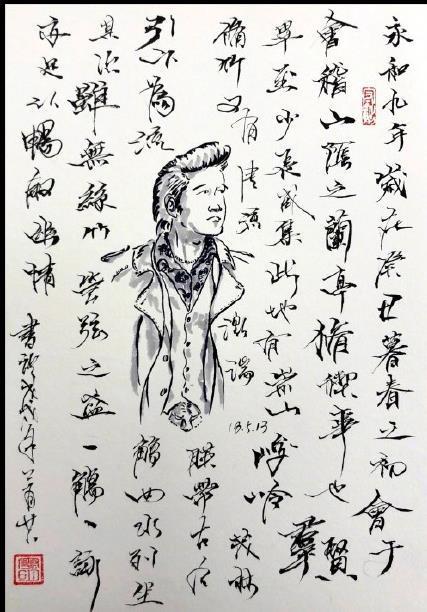 永和九年歲在癸丑暮春之初會于
會稽山陰之蘭亭脩禊事也羣賢
畢至少長咸集此地有崇山峻嶺茂林
脩竹又有清流激湍
18.5.13
映帶左右
引以為流觴曲水列坐
其次雖無絲竹管弦之盛一觴一詠
亦足以暢敘幽情
戊戌年